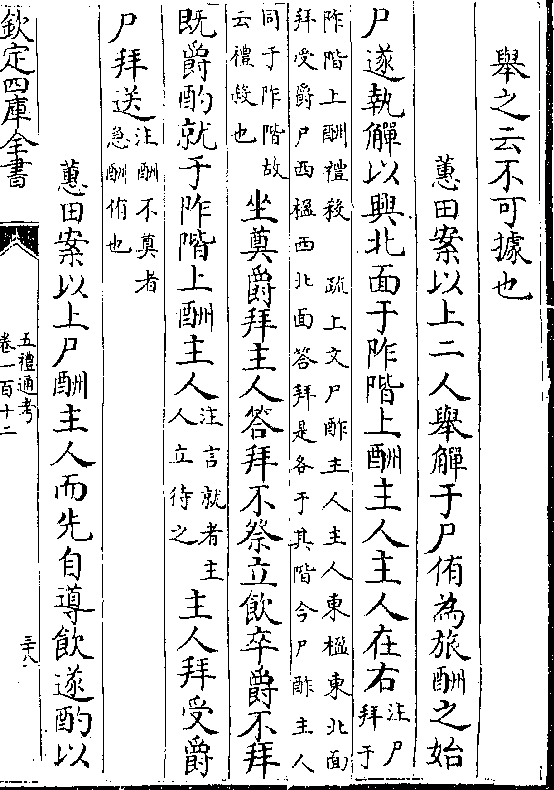 舉之云不可據也
蕙田案以上二人舉觶于尸侑為旅酬之始
尸遂執觶以興北面于阼階上酬主人主人在右注尸拜于
阼階上酬禮殺　疏上文尸酢主人主人東楹東北面
拜受爵尸西楹西北面答拜是各于其階今尸酢主人
同于阼階故
云禮殺也
坐奠爵拜主人答拜不祭立飲卒爵不拜
既爵酌就于阼階上酬主人注言就者主人立待之主人拜受爵
尸拜送注酬不奠者急酬侑也
蕙田案以上尸酬主人而先自導飲遂酌以
欽定四庫全書
五禮通考
卷一百十二
三十八